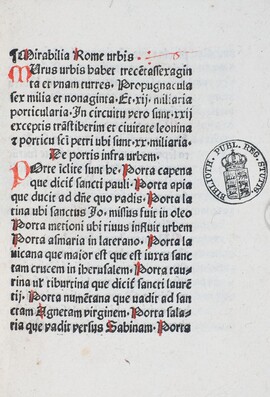 ¶Mirabilia Rome urbis
Murus urbis habet trecẽtassexagin
ta et vnam turres. Propugnacula
sex milia et nonaginta. Et. xij. miliaria
porticularia. In circuitu ṽo sunt. xxij
exceptis trãstiberim et ciuitate leonina
⁊ porticu sci petri vbi sunt. xx. miliaria.
De portis infra vrbem.
Porte iclite sunt he. Porta capena
que dicit̃ sancti pauli. Porta apia
que ducit ad dñe quo vadis. Porta la
tina vbi sanctus Jo. missus fuit in oleo
Porta metroni vbi riuus influit vrbem
Porta asmaria in laterano. Porta la
uicana que maior est que est iuxta sanc
tam crucem in iherusalem. Porta tau
rina ut tiburtina que dicit̃ sancti laurẽ
tij. Porta numẽtana que vadit ad san
ctam Agnetam virginem. Porta sala
ria que vadit versus Sabinam. Porta
BIBLIOTH. PUBL. REG. STUTG.